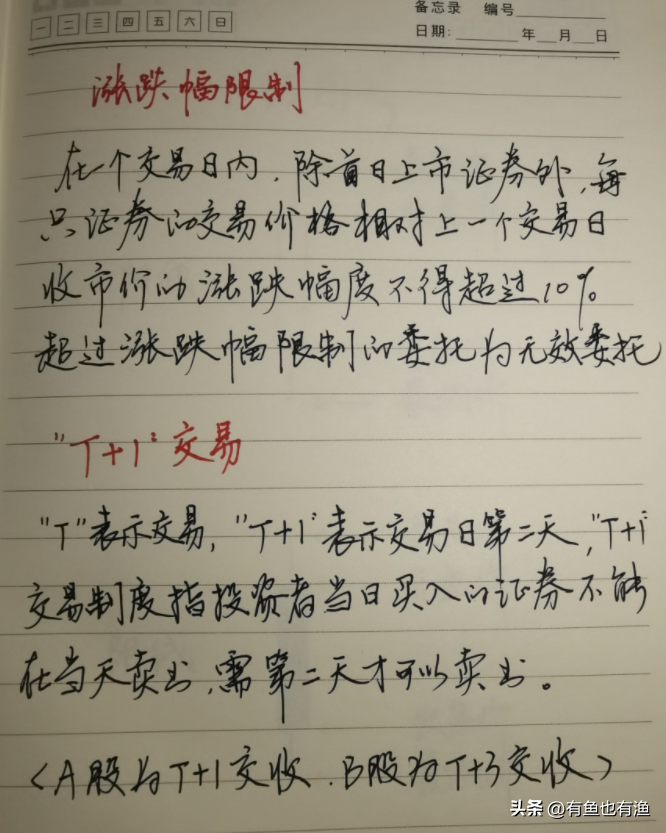 备忘录 编号
一 二 三 四 五 六 日
日期: 年 月 日
涨跌幅限制
在一个交易日内，除首日上市证券外，每
只证券的交易价格相对上一个交易日
收市价的涨跌幅度不得超过10%
超过涨跌幅限制的委托为无效委托
"T+1"交易
"T"表示交易，"T+1"表示交易日第二天，"T+1"
交易制度指投资者当日买入的证券不能
在当天卖出，需第二天才可以卖出。
<A股为T+1交收，B股为T+3交收>
头条 @有鱼也有渔